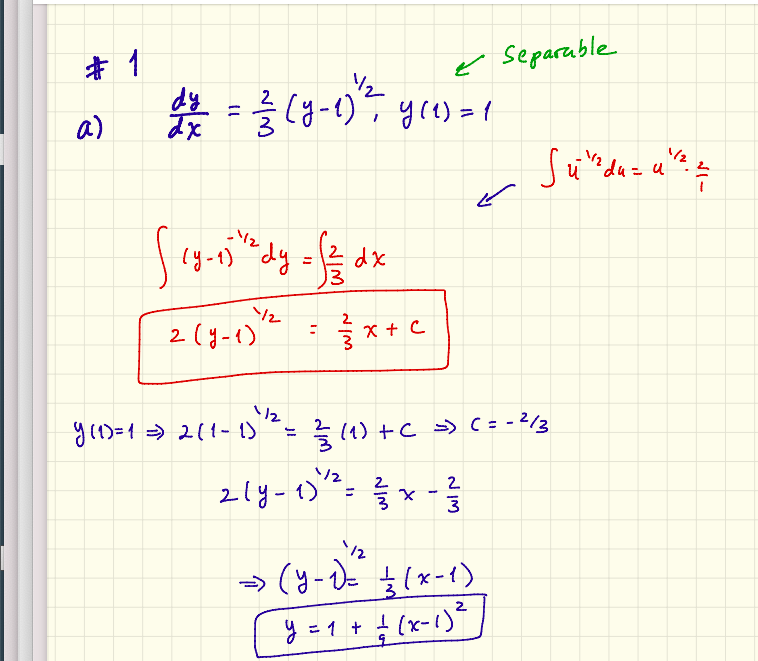 # 1
separable
a) dy/dx = 2/3 (y-1)^1/2, y(1) = 1
∫ u^-1/2 du = u^1/2 · 2/1
∫ (y-1)^-1/2 dy = ∫ 2/3 dx
2(y-1)^1/2 = 2/3 x + C
y(1)=1 ⇒ 2(1-1)^1/2 = 2/3 (1) + C ⇒ C = -2/3
2(y-1)^1/2 = 2/3 x - 2/3
⇒ (y-1)^1/2 = 1/3 (x-1)
y = 1 + 1/9 (x-1)^2